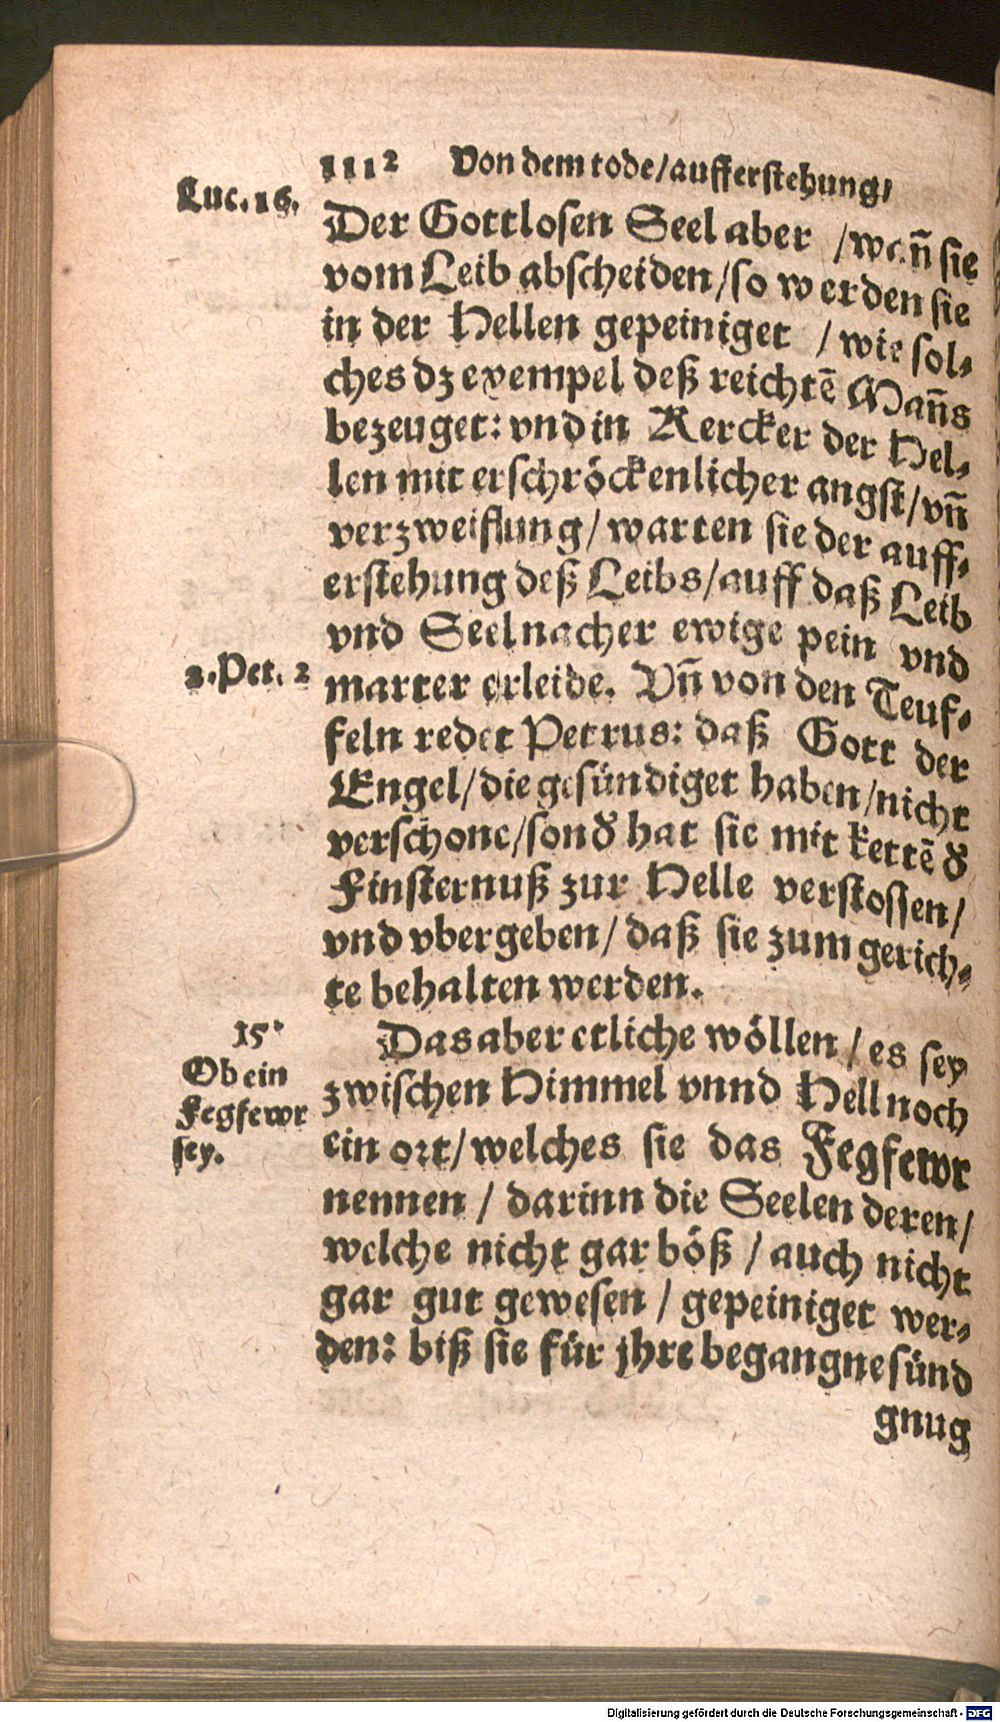 1112 Von dem tode/aufferstehung/
Luc. 16.
Der Gottlosen Seel aber /wañ sie
vom Leib abscheiden/so werden sie
in der Hellen gepeiniget /wie sol-
ches dz exempel deß reichtē Mañs
bezeuget: vnd in Kercker der Hel-
len mit erschröckenlicher angst/vñ
verzweiflung/warten sie der auff-
erstehung deß Leibs/auff daß Leib
vnd Seel nacher ewige pein vnd
2. Pet. 2
marter erleide. Vñ von den Teuf-
feln redet Petrus: daß Gott der
Engel/die gesündiget haben/nicht
verschone/sonđ hat sie mit kettē đ
Finsternuß zur Helle verstossen/
vnd vbergeben/daß sie zum gerich-
te behalten werden.
15.
Ob ein
Fegfewr
sey.
Das aber etliche wöllen/es sey
zwischen Himmel vnnd Hell noch
ein ort/welches sie das Fegfewr
nennen/darinn die Seelen deren/
welche nicht gar böß/auch nicht
gar gut gewesen/gepeiniget wer-
den: biß sie für jhre begangne sünd
gnug
Digitalisierung gefördert durch die Deutsche Forschungsgemeinschaft - DFG